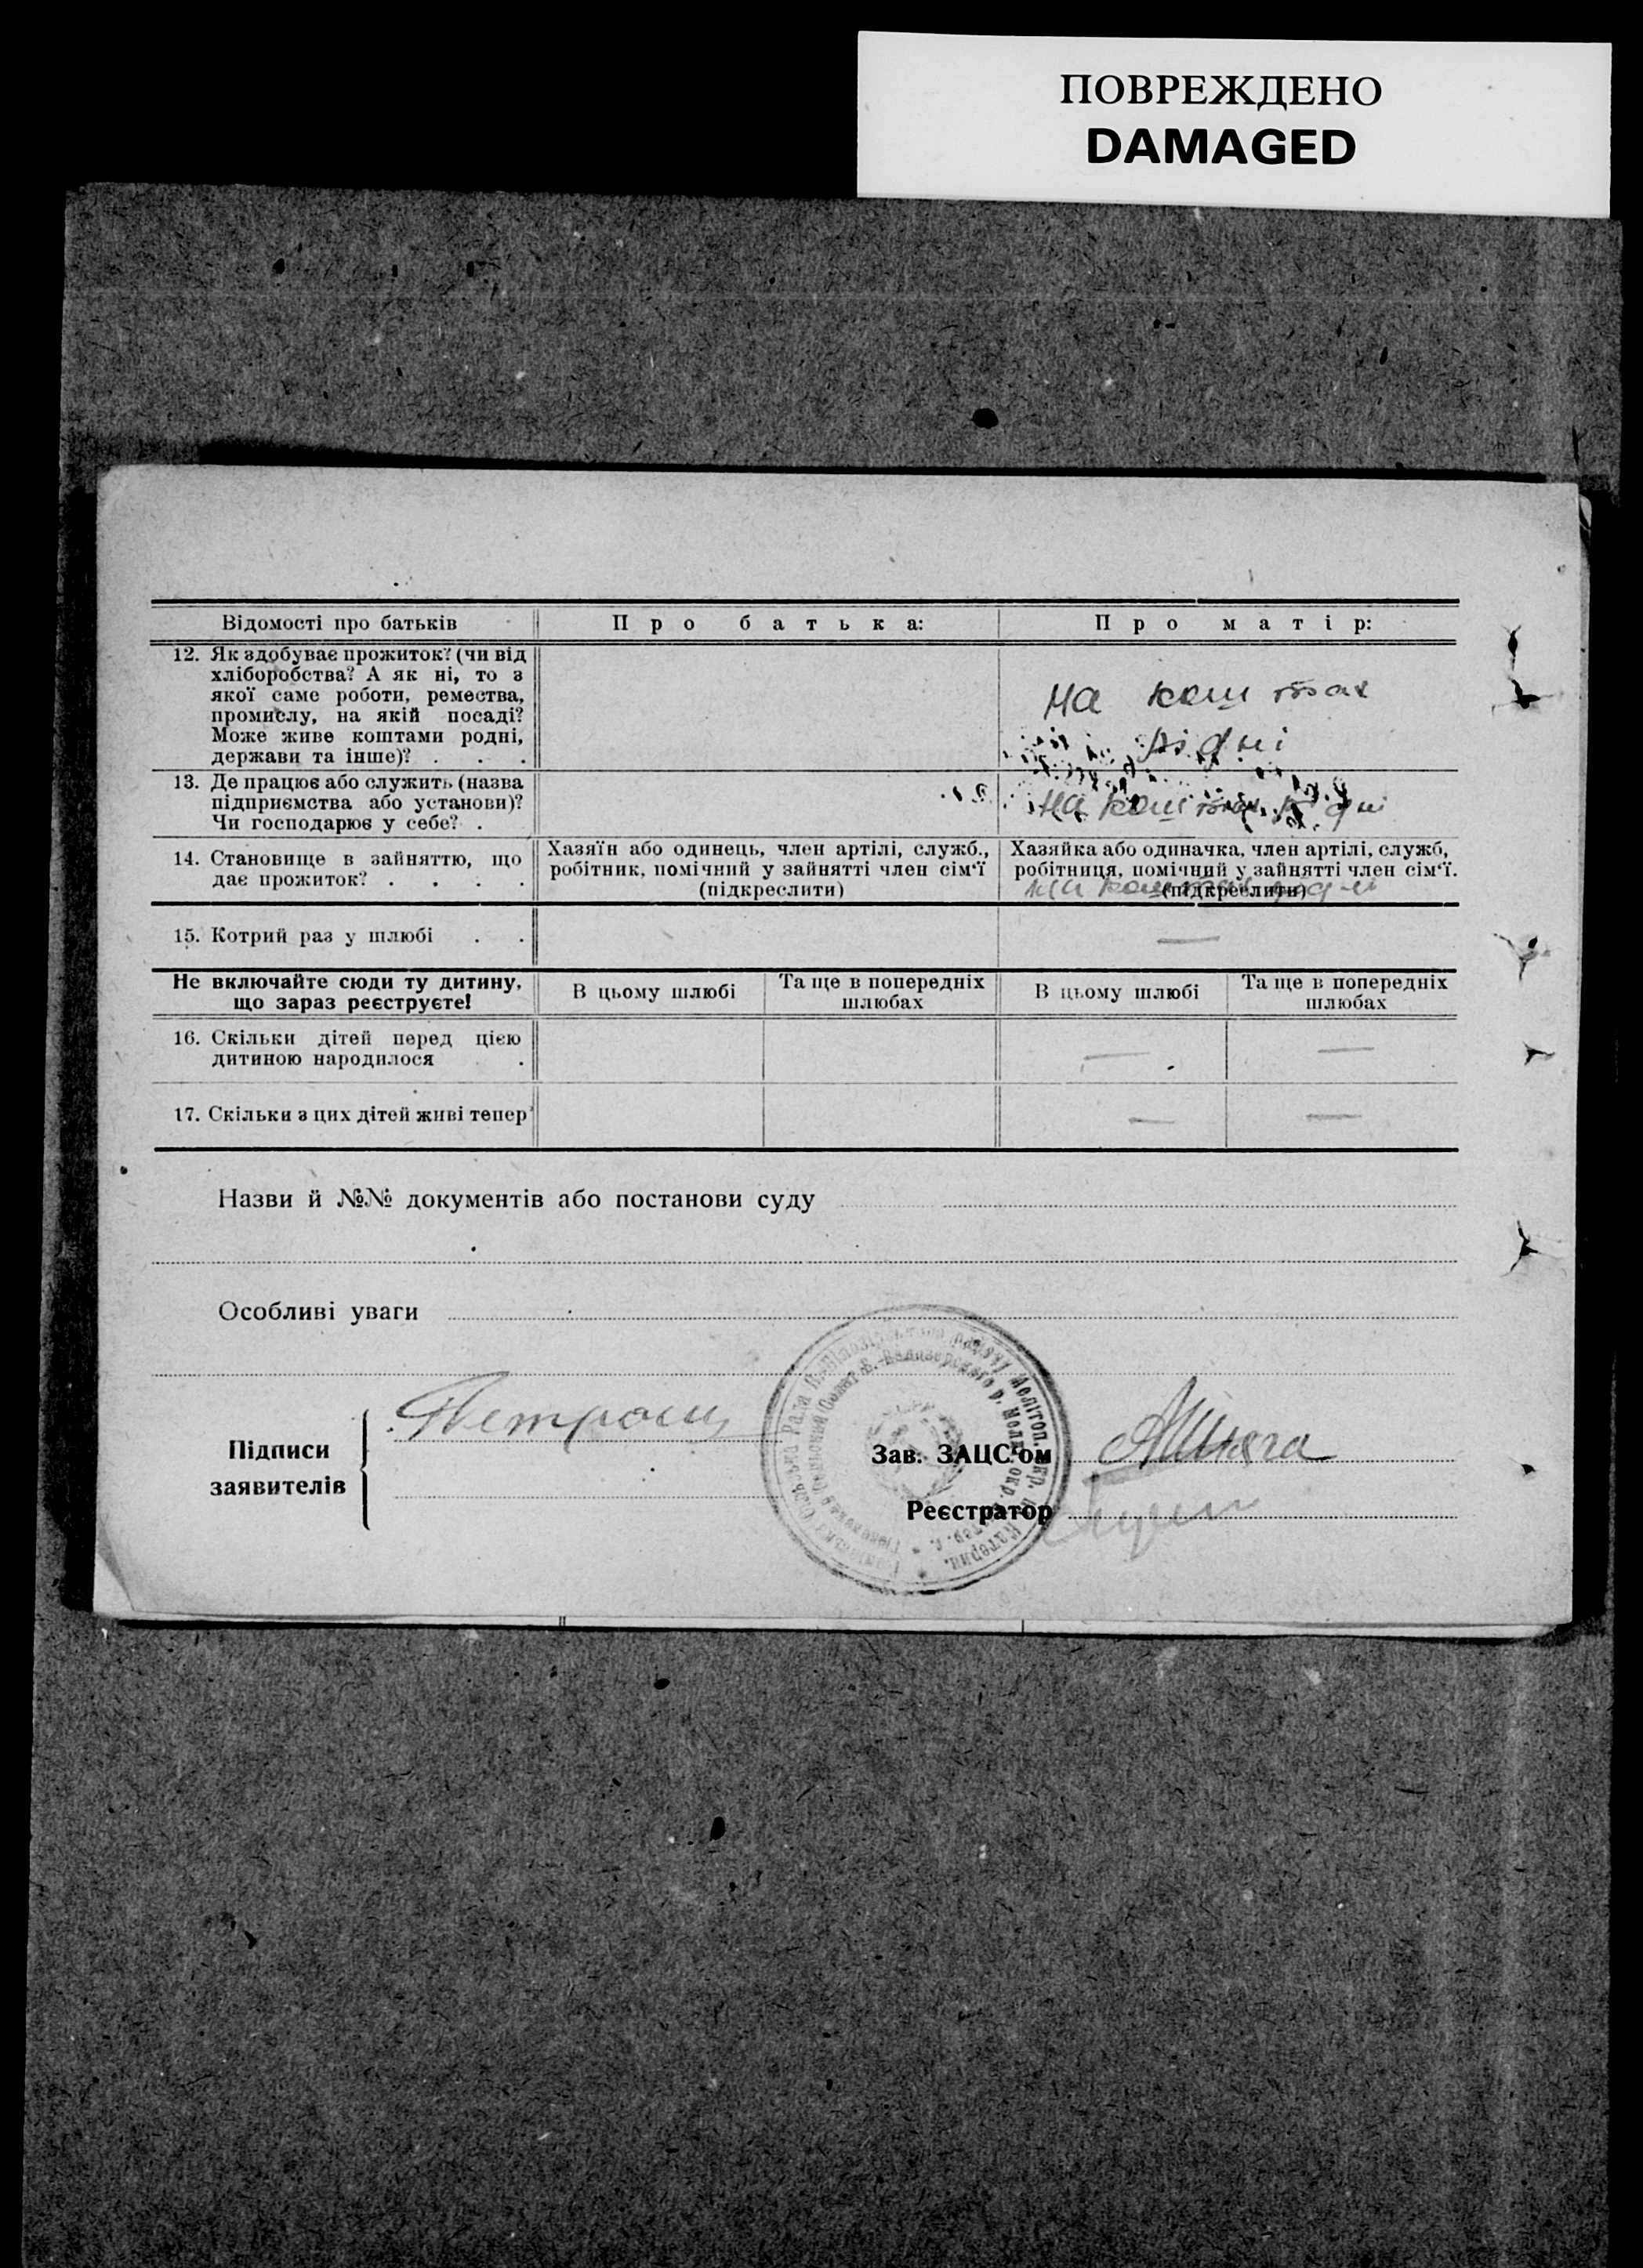 ПОВРЕЖДЕНО
DAMAGED
Відомості про батьків
Про батька:
Про матір:
12. Як здобуває прожиток? (чи від
хліборобства? А як ні, то з
якої саме роботи, ремества,
промислу, на якій посаді?
Може живе коштами родні,
держави та інше)? . . .
на коштах
рідні
13. Де працює або служить (назва
підприємства або установи)?
Чи господарює у себе? .
на коштах рідні
14. Становище в зайняттю, що
дає прожиток? . . . .
Хазяїн або одинець, член артілі, служб.,
робітник, помічний у зайнятті член сім'ї
(підкреслити)
Хазяйка або одиначка, член артілі, служб,
робітниця, помічний у зайнятті член сім'ї.
(підкреслити)
на коштах рідні
15. Котрий раз у шлюбі . .
—
Не включайте сюди ту дитину,
що зараз реєструєте!
В цьому шлюбі
Та ще в попередніх
шлюбах
В цьому шлюбі
Та ще в попередніх
шлюбах
16. Скільки дітей перед цією
дитиною народилося .
— —
17. Скільки з цих дітей живі тепер
— —
Назви й №№ документів або постанови суду
Особливі уваги
Підписи
заявителів
Зав. ЗАЦС'ом
Реєстратор